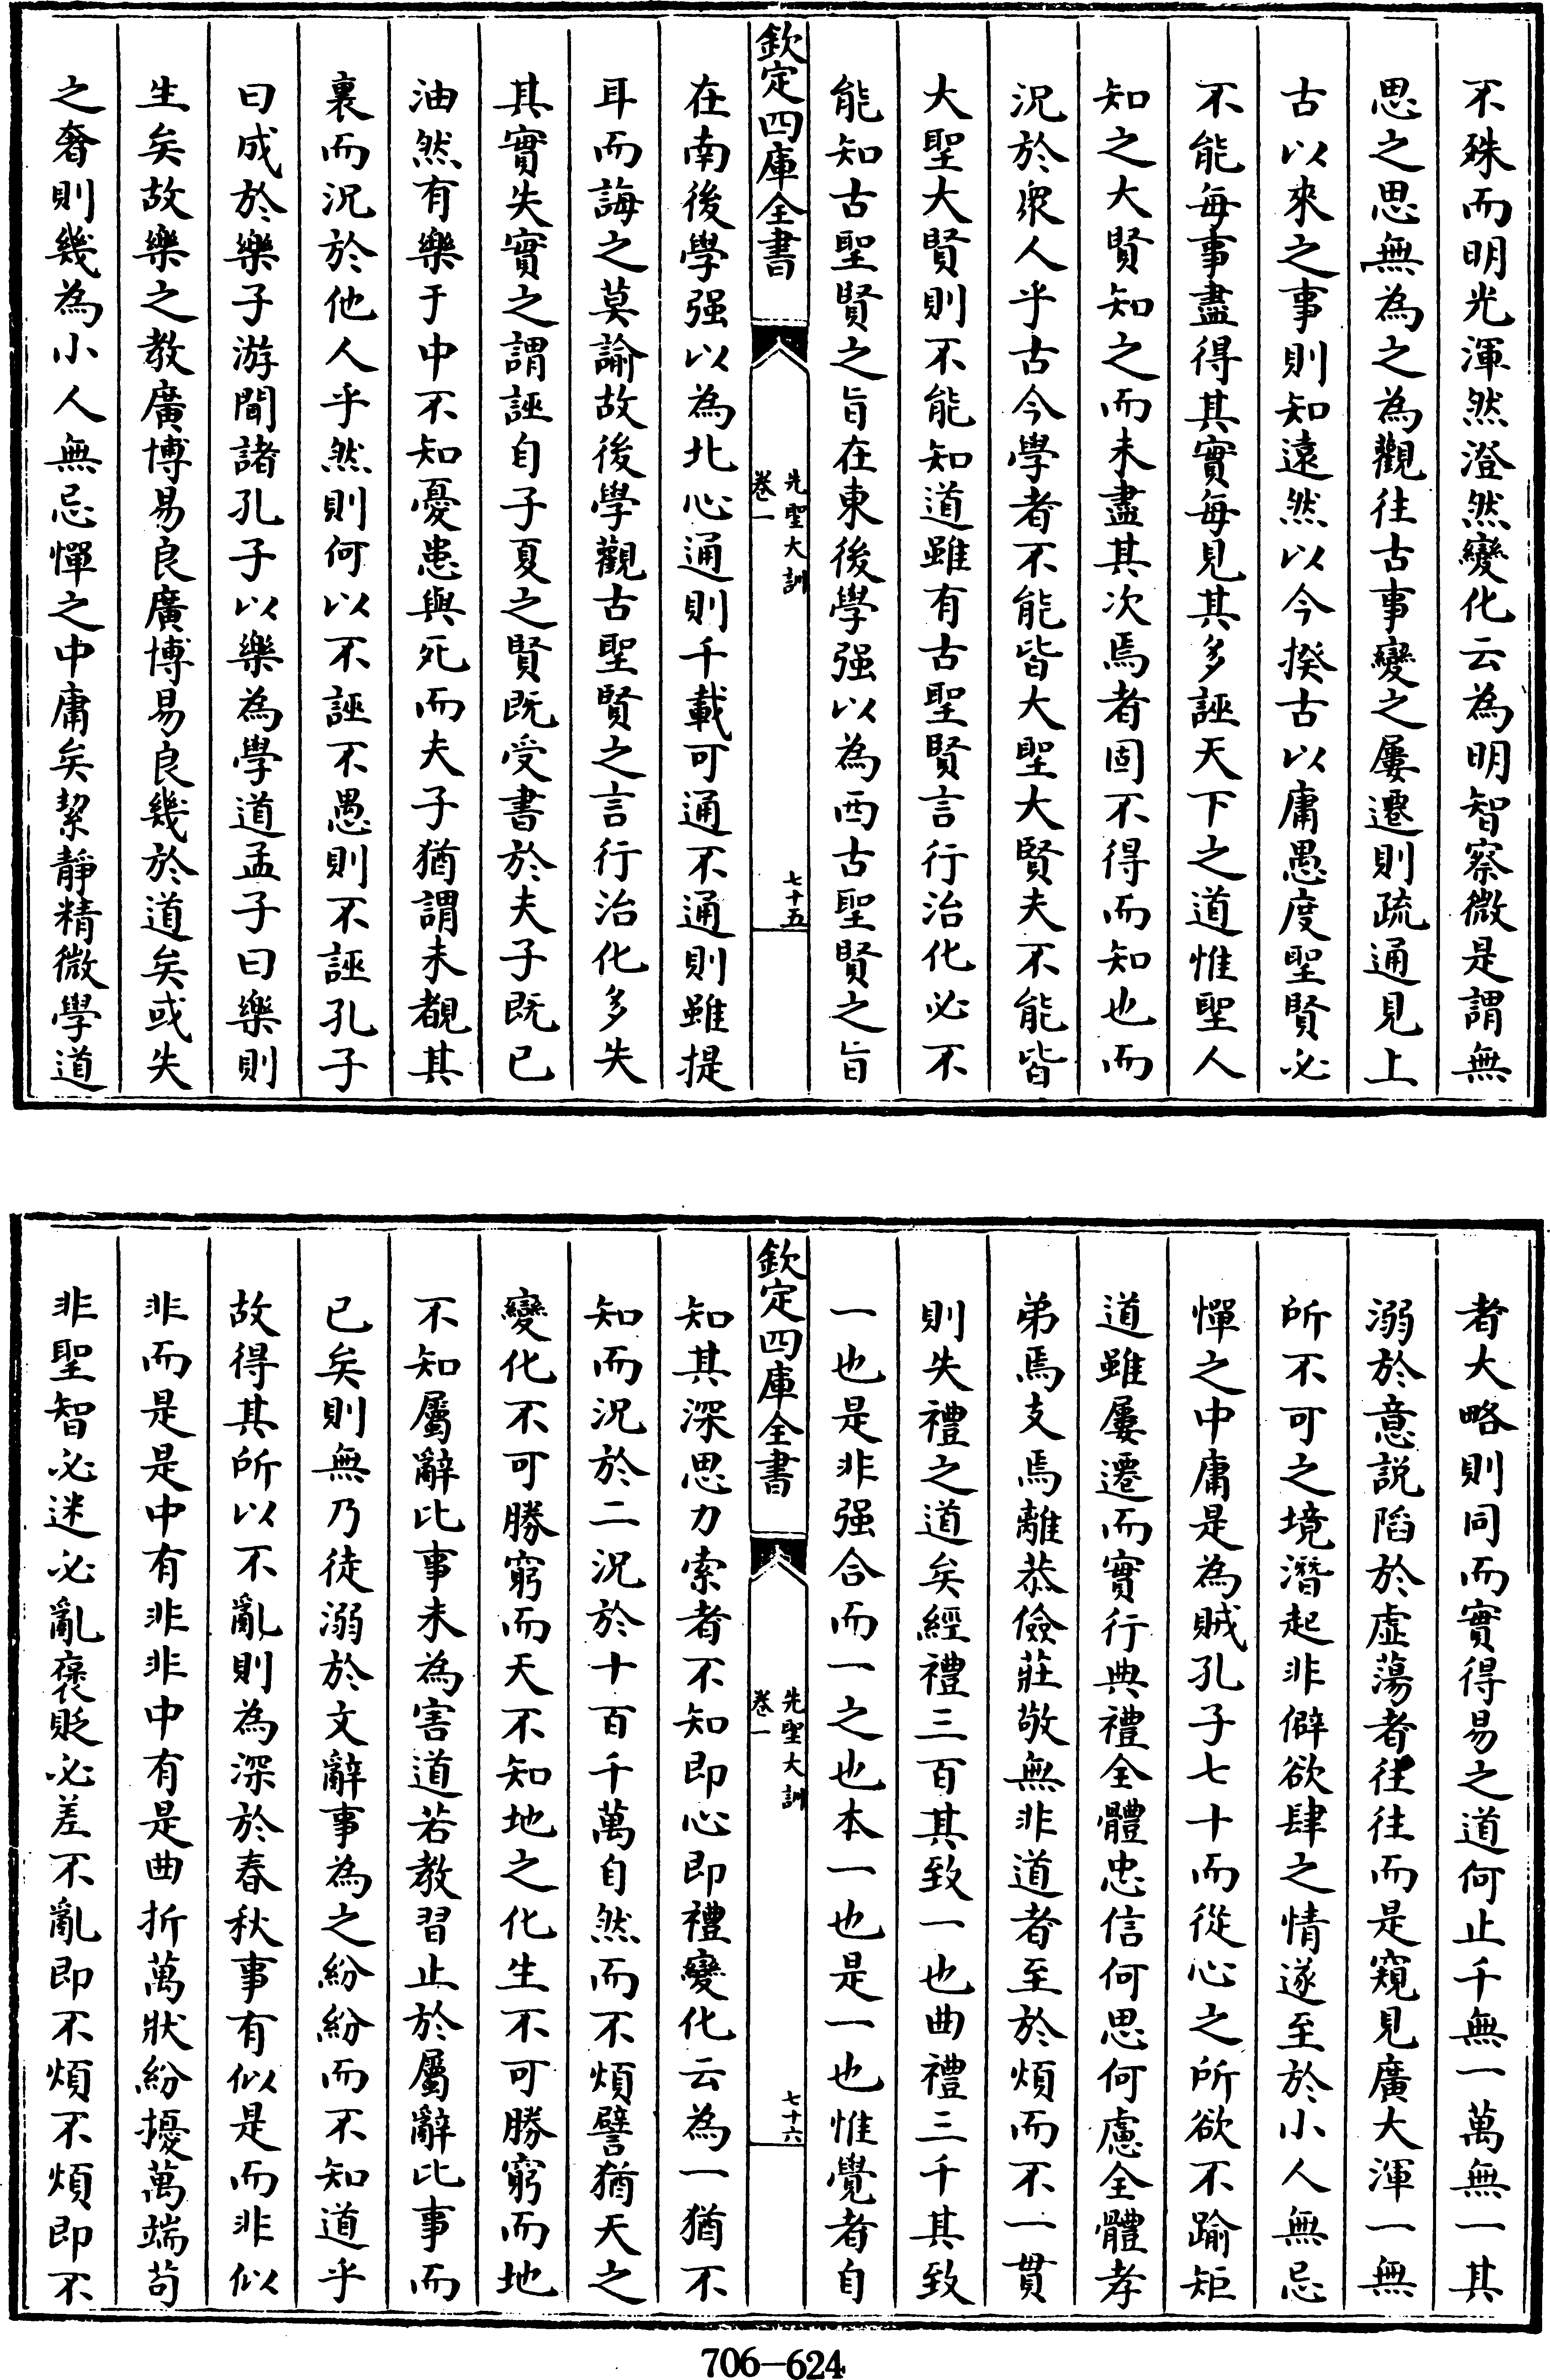 不殊而明光渾然澄然變化云為明智察微是謂無
思之思無為之為觀往古事變之屢遷則疏通見上
古以來之事則知遠然以今揆古以庸愚度聖賢必
不能每事盡得其實每見其多誣天下之道惟聖人
知之大賢知之而未盡其次焉者固不得而知也而
況於衆人乎古今學者不能皆大聖大賢夫不能皆
大聖大賢則不能知道雖有古聖賢言行治化必不
能知古聖賢之旨在東後學强以為西古聖賢之旨
欽定四庫全書
先聖大訓
卷一
七十五
在南後學强以為北心通則千載可通不通則雖提
耳而誨之莫諭故後學觀古聖賢之言行治化多失
其實失實之謂誣自子夏之賢既受書於夫子既已
油然有樂于中不知憂患與死而夫子猶謂未覩其
裏而況於他人乎然則何以不誣不愚則不誣孔子
曰成於樂子游聞諸孔子以樂為學道孟子曰樂則
生矣故樂之教廣博易良廣博易良幾於道矣或失
之奢則幾為小人無忌憚之中庸矣絜靜精微學道
者大略則同而實得易之道何止千無一萬無一其
溺於意説陷於虛蕩者往往而是窺見廣大渾一無
所不可之境潛起非僻欲肆之情遂至於小人無忌
憚之中庸是為賊孔子七十而從心之所欲不踰矩
道雖屢遷而實行典禮全體忠信何思何慮全體孝
弟焉支焉離恭儉莊敬無非道者至於煩而不一貫
則失禮之道矣經禮三百其致一也曲禮三千其致
一也是非强合而一之也本一也是一也惟覺者自
欽定四庫全書
先聖大訓
卷一
七十六
知其深思力索者不知即心即禮變化云為一猶不
知而況於二況於十百千萬自然而不煩譬猶天之
變化不可勝窮而天不知地之化生不可勝窮而地
不知屬辭比事未為害道若教習止於屬辭比事而
已矣則無乃徒溺於文辭事為之紛紛而不知道乎
故得其所以不亂則為深於春秋事有似是而非似
非而是是中有非非中有是曲折萬狀紛擾萬端苟
非聖智必迷必亂褒貶必差不亂即不煩不煩即不
706-624